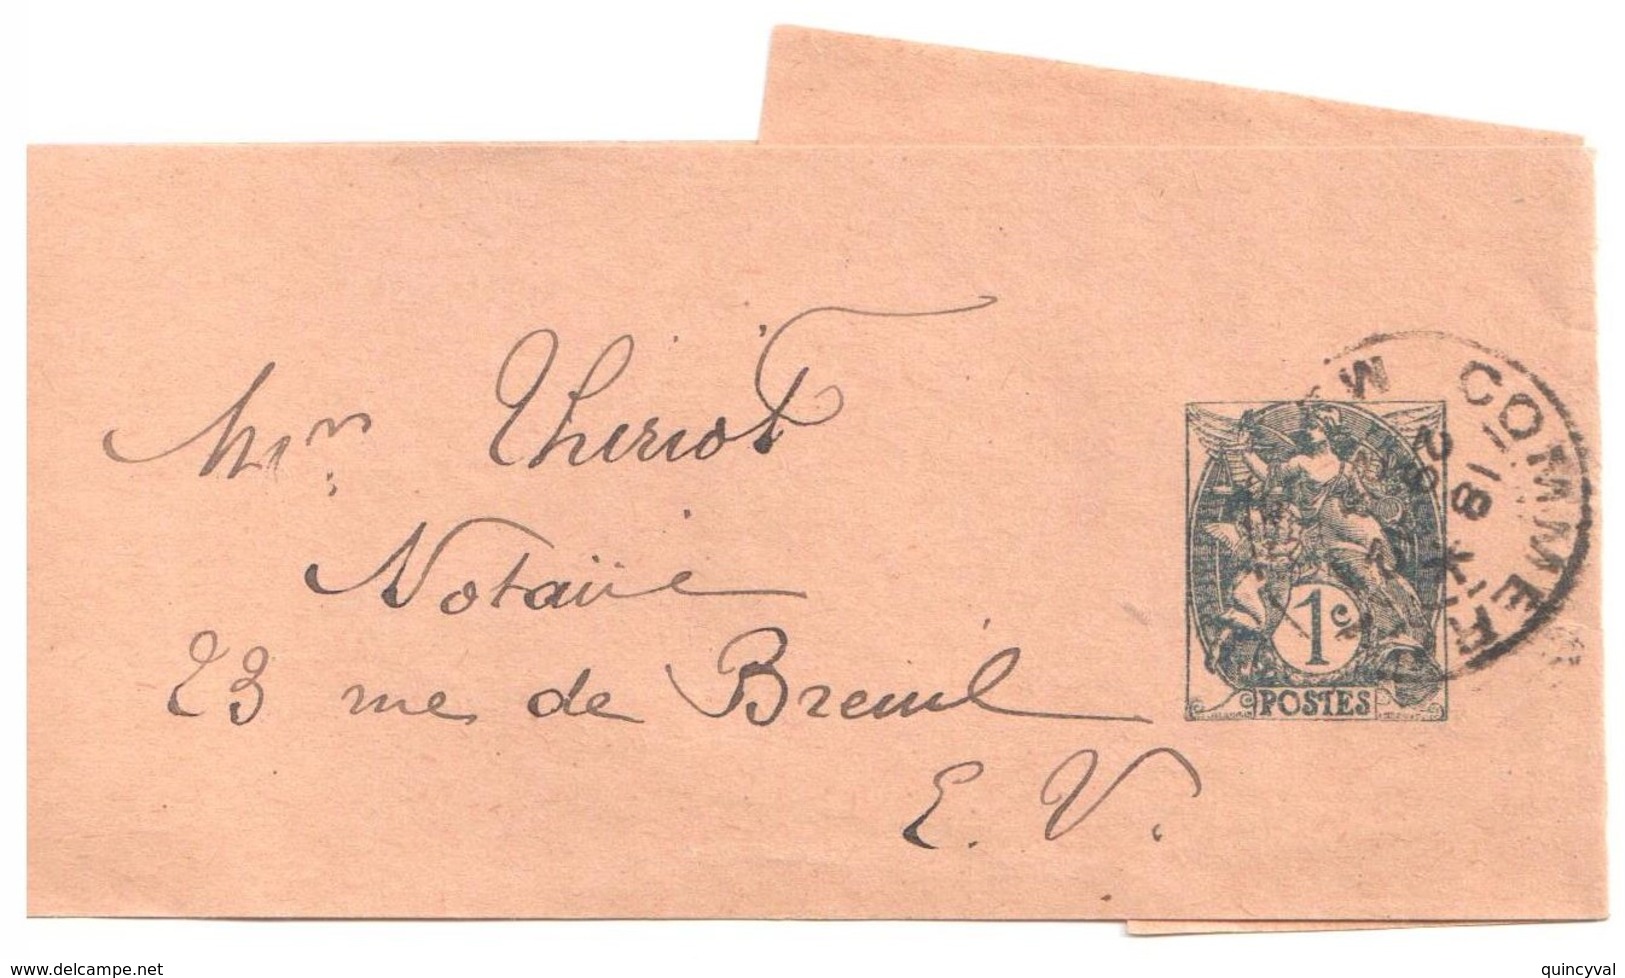 Mr Thiriot
Notaire
23 rue de Breuil
E. V.
1c
POSTES
COMMERCY
www.delcampe.net
quincyval